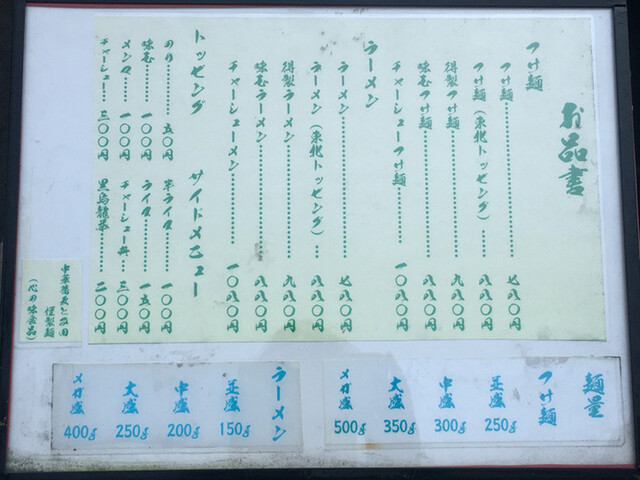 お品書
つけ麺
つけ麺……七八〇円
つけ麺（東北トッピング）…八八〇円
得製つけ麺……九八〇円
味玉つけ麺……八八〇円
チャーシューつけ麺……一〇八〇円
ラーメン
ラーメン……七八〇円
ラーメン（東北トッピング）…八八〇円
得製ラーメン……九八〇円
味玉ラーメン……八八〇円
チャーシューメン……一〇八〇円
トッピング
のり……五〇円
味玉……一〇〇円
メンマ……一〇〇円
チャーシュー…三〇〇円
サイドメニュー
半ライス……一〇〇円
ライス……一五〇円
チャーシュー丼…三〇〇円
黒烏龍茶……二〇〇円
中華蕎麦とみ田
謹製麺
（心の味食品）
麺量
つけ麺
並盛 250g
中盛 300g
大盛 350g
メガ盛 500g
ラーメン
並盛 150g
中盛 200g
大盛 250g
メガ盛 400g